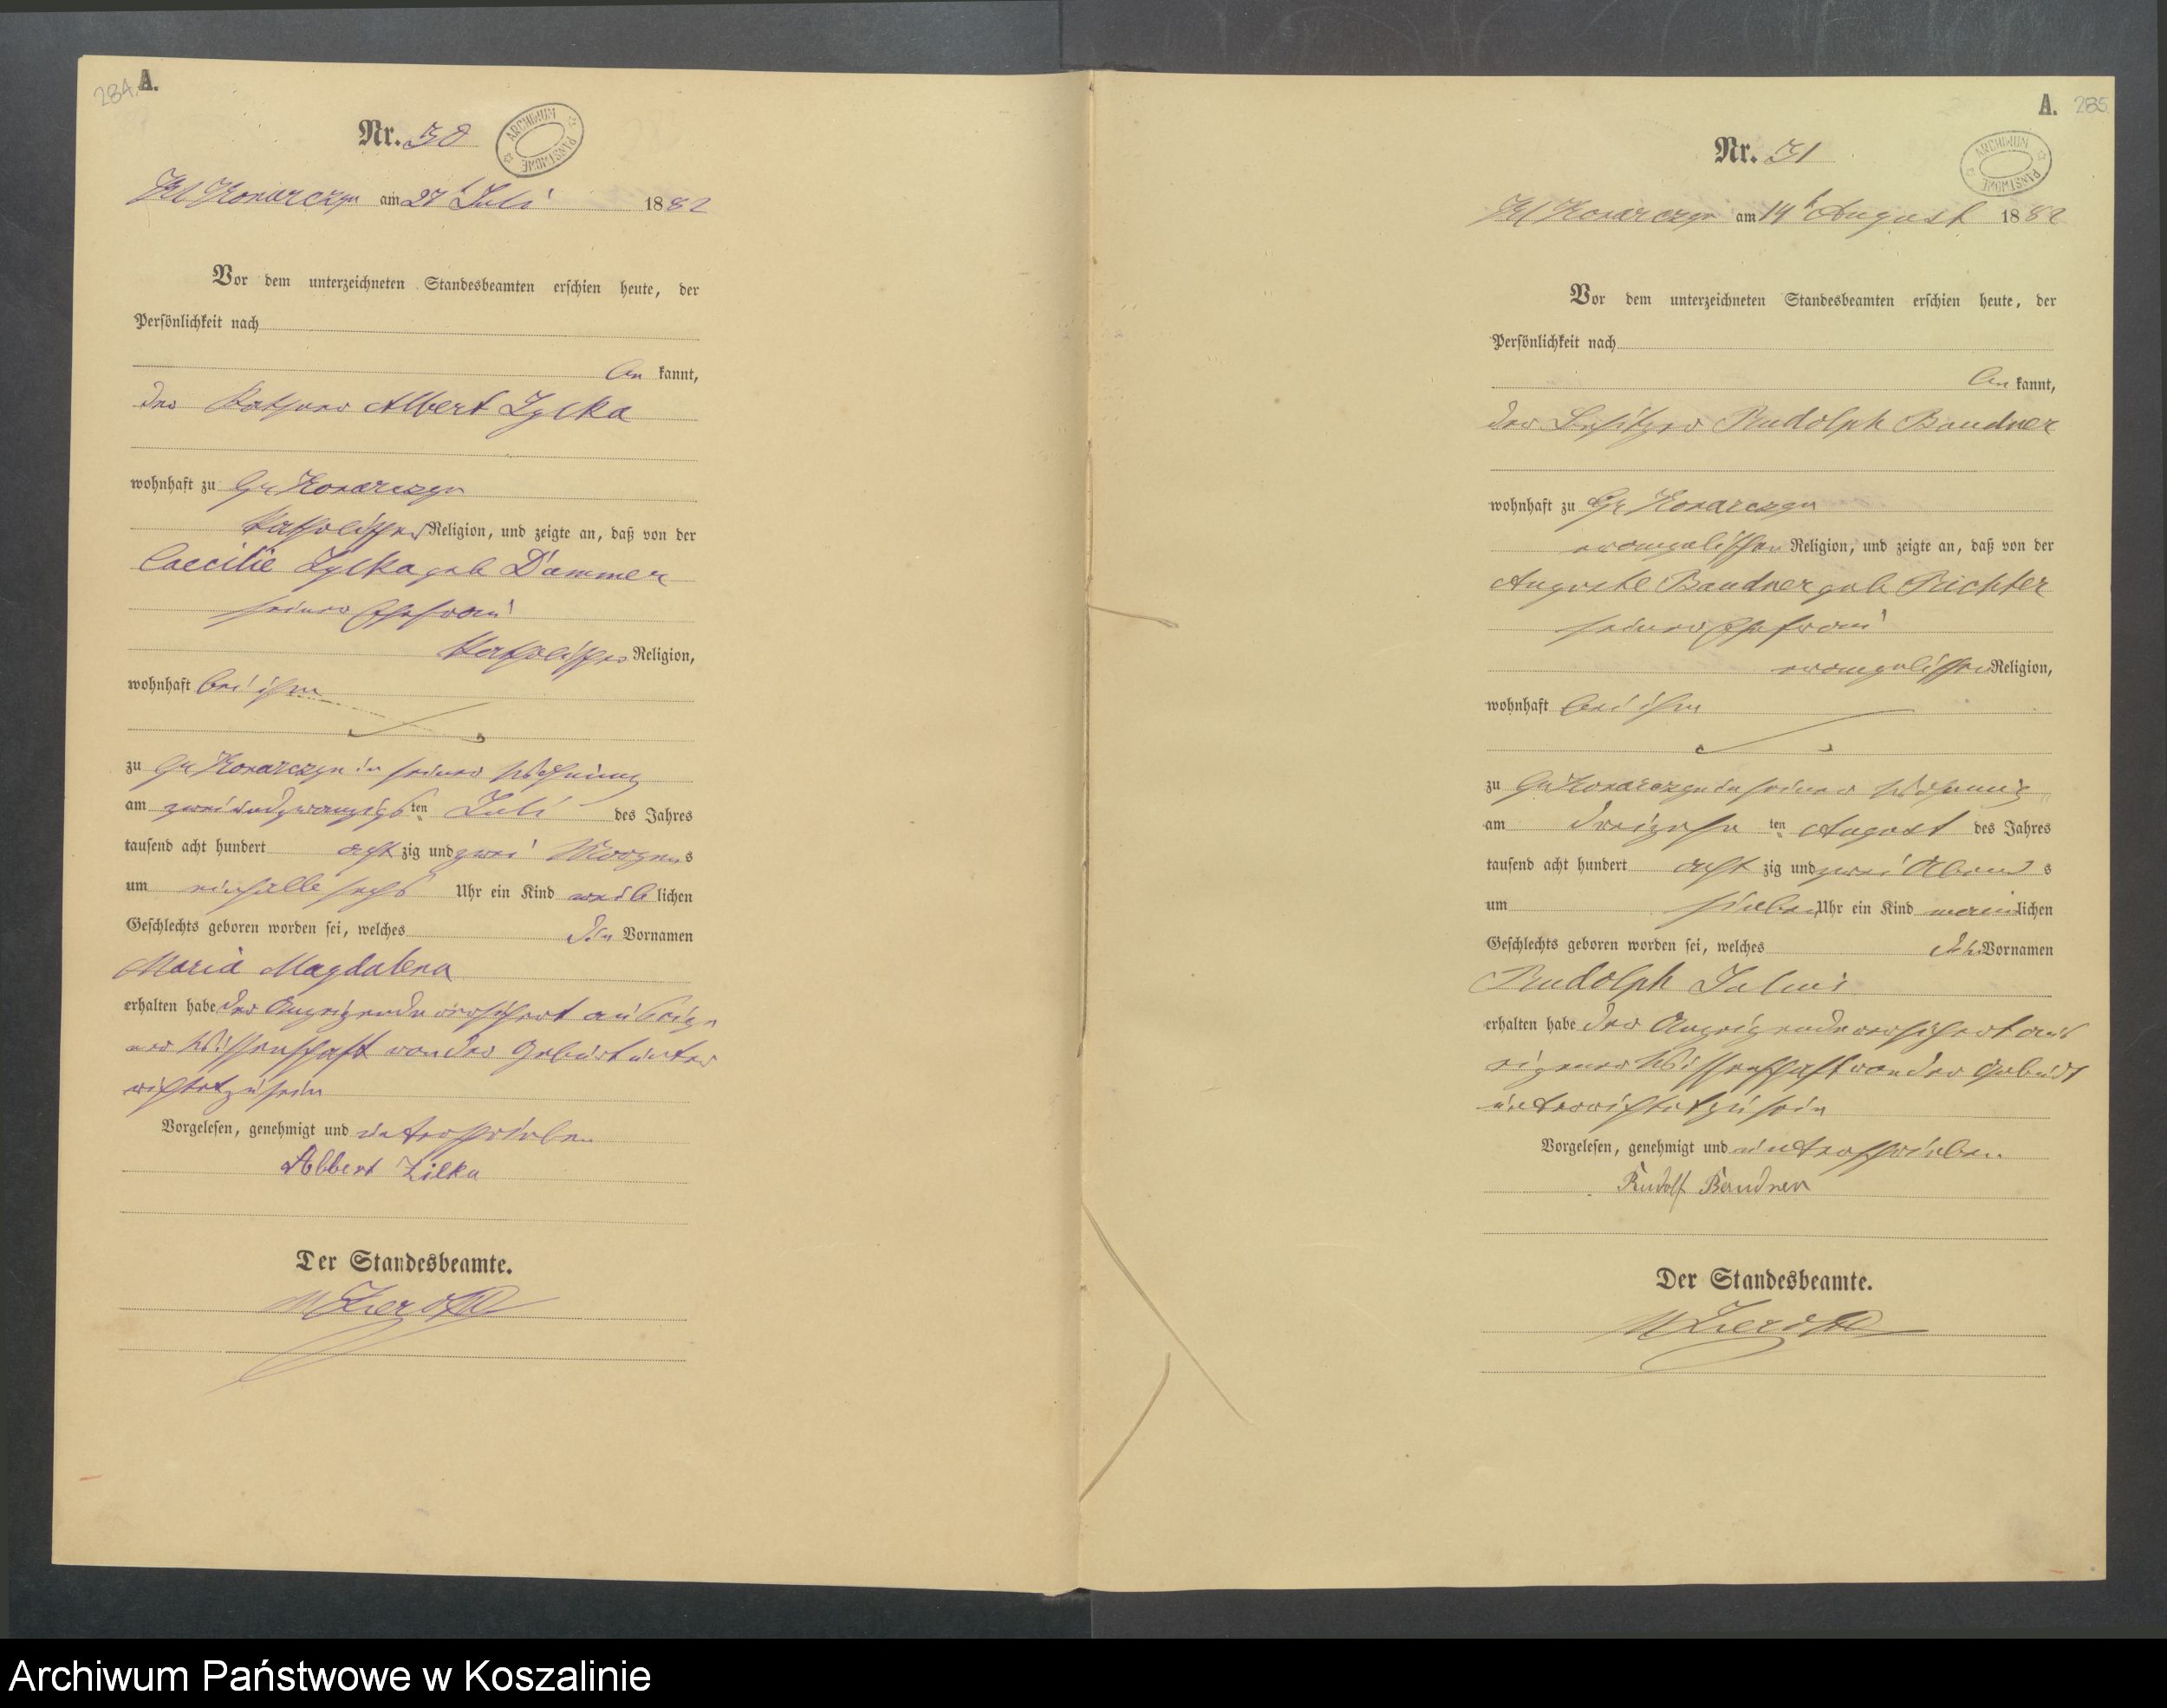 284.
A.
Nr. 30
ARCHIWUM PAŃSTWOWE
Kl Konarczyn am 27 t Juli 1882
Vor dem unterzeichneten Standesbeamten erschien heute, der
Persönlichkeit nach
be kannt,
der Kathner Albert Zylka
wohnhaft zu Gr Konarczyn
katholischer Religion, und zeigte an, daß von der
Caecilie Zylka geb Dammer
seiner Ehefrau
katholischer Religion,
wohnhaft bei ihm
zu Gr Konarczyn in seiner Wohnung
am zweiundzwanzigs ten Juli des Jahres
tausend acht hundert acht zig und zwei Morgens
um einhalb sechs Uhr ein Kind weib lichen
Geschlechts geboren worden sei, welches die Vornamen
Maria Magdalena
erhalten habe der Anzeigende versichert aus eige
ner Wissenschaft von der Geburt unter
richtet zu sein
Vorgelesen, genehmigt und unterschrieben
Albert Zilka
Der Standesbeamte.
A. 285
Nr. 31
ARCHIWUM PAŃSTWOWE
Kl Konarczyn am 14 t August 1882
Vor dem unterzeichneten Standesbeamten erschien heute, der
Persönlichkeit nach
be kannt,
der Besitzer Rudolph Baudner
wohnhaft zu Gr Konarczyn
evangelischer Religion, und zeigte an, daß von der
Auguste Baudner geb Richter
seiner Ehefrau
evangelischer Religion,
wohnhaft bei ihm
zu Gr Konarczyn in seiner Wohnung
am dreizehn ten August des Jahres
tausend acht hundert acht zig und zwei Abend s
um sieben Uhr ein Kind männlichen
Geschlechts geboren worden sei, welches die Vornamen
Rudolph Julius
erhalten habe der Anzeigende versichert aus
eigener Wissenschaft von der Geburt
unterrichtet zu sein
Vorgelesen, genehmigt und unterschrieben
Rudolf Baudner
Der Standesbeamte.
Archiwum Państwowe w Koszalinie